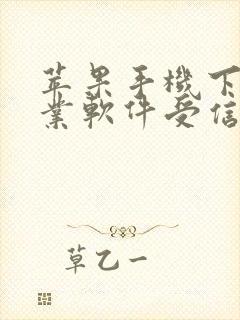 苹果手機下
業軟件受信
草乙一